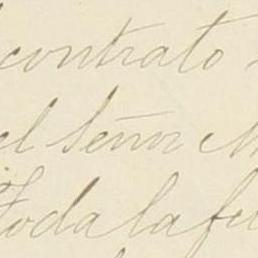 contrato
el Señor M
Toda la fel